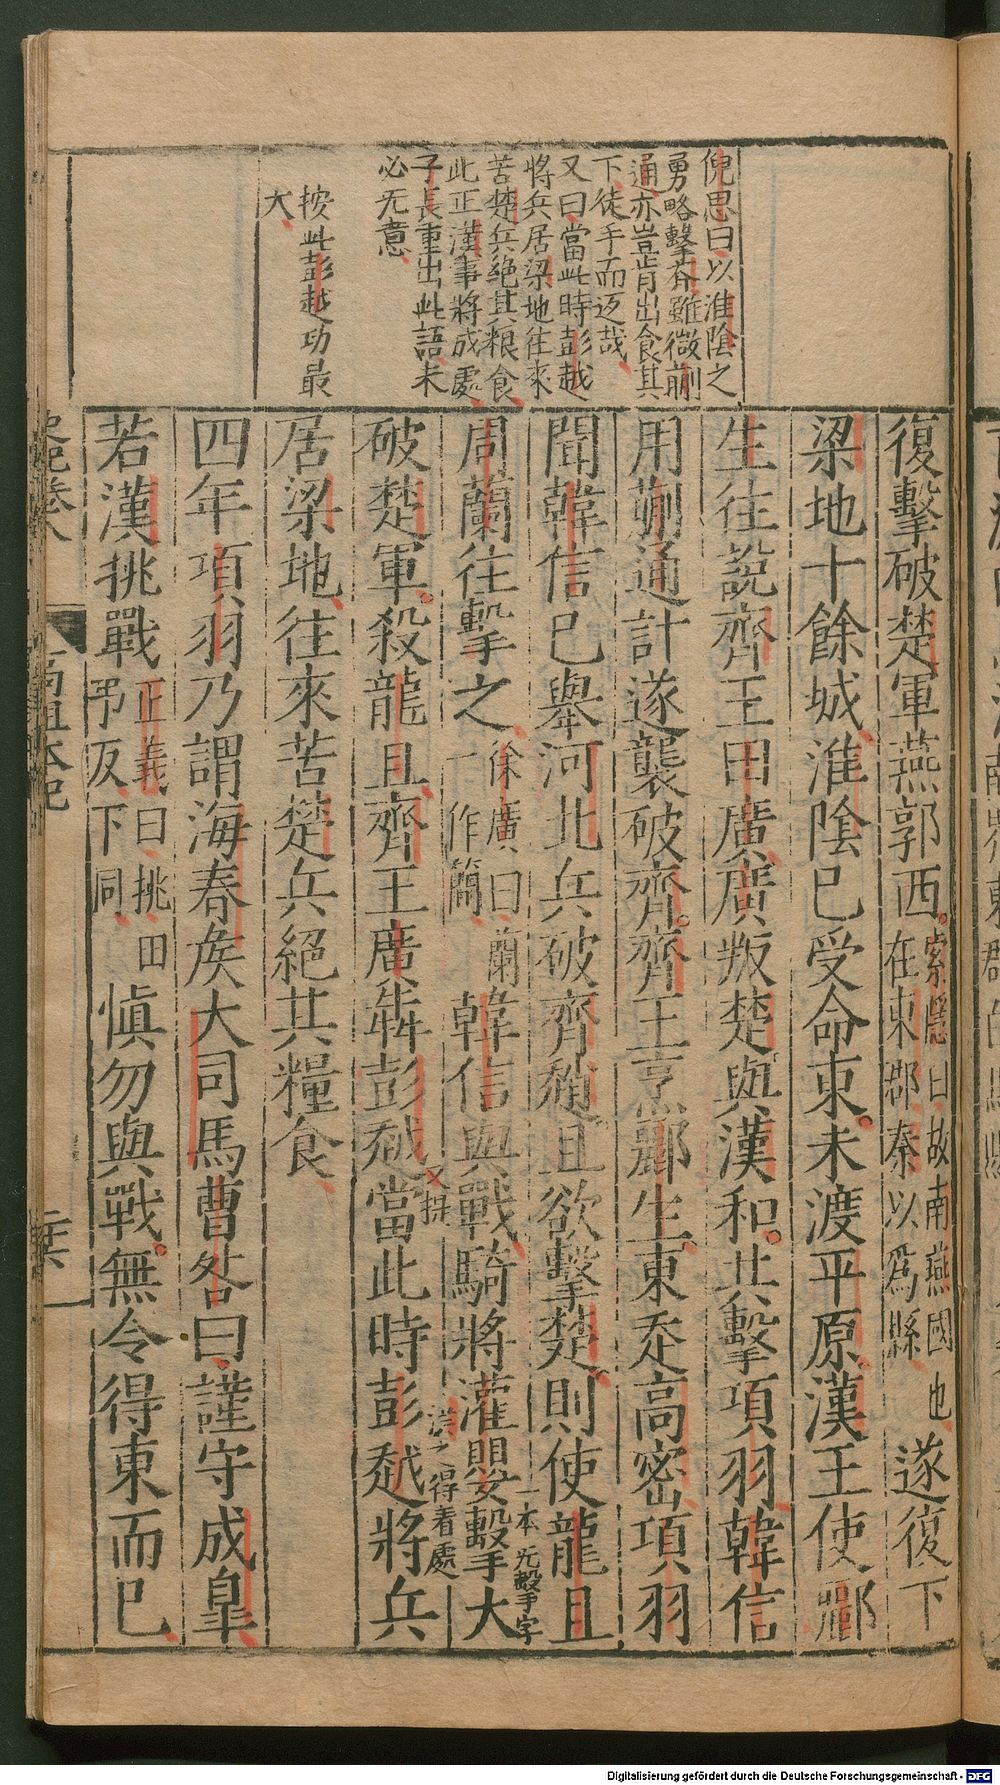 倪思曰以淮陰之
勇略擊齊雖微蒯
通亦豈肯出食其
下徒手而返哉
又曰當此時彭越
將兵居梁地往來
苦楚兵絕其粮食
此正漢事將成處
子長重出此語未
必无意
按此彭越功最
大
復擊破楚軍燕郭西索隱曰故南燕國也在東郡秦以爲縣遂復下
梁地十餘城淮陰已受命東未渡平原漢王使酈
生往說齊王田廣廣叛楚與漢和共擊項羽韓信
用蒯通計遂襲破齊齊王烹酈生東走高密項羽
聞韓信已舉河北兵破齊趙且欲擊楚則使龍且
一本无擊字
周蘭往擊之徐廣曰蘭一作簡韓信與戰騎將灌嬰擊大
之得看處
破楚軍殺龍且齊王廣犇彭越當此時彭越將兵
又提
居梁地往來苦楚兵絕其糧食
四年項羽乃謂海春矦大司馬曹咎曰謹守成皐
若漢挑戰正義曰挑田弔反下同慎勿與戰無令得東而已
史記卷八
高祖本紀